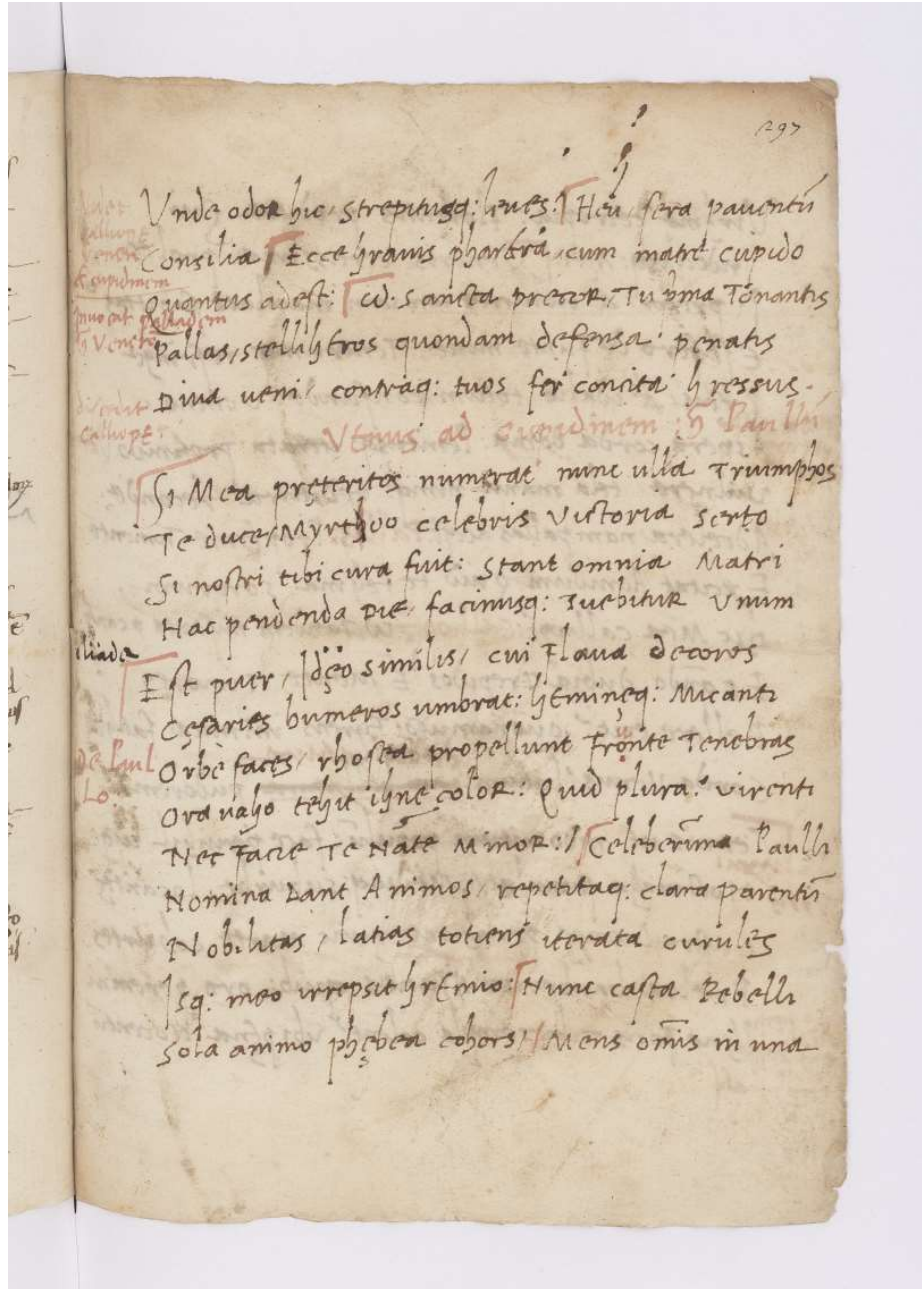 297
Vnde odor hic, strepitusq: leues: Heu, sera pauentũ
Consilia Ecce grauis pharetra, cum matre cupido
Quantus adest: Sancta precor, Tu Tonantis
Pallas, stelligeros quondam defensa penatis
Diua ueni, contraq: tuos fer concita gressus.
Venus ad cupidinem Paullũ
Si Mea pręteritos numerat nunc ulla Triumphos
Te duce, Myrtheo celebris Victoria Serto
Si nostri tibi cura fuit: Stant omnia Matri
Hac pendenda Die, facinusq: Tuebitur Vnum
iliade
Est puer, Idęo similis, cui Flaua decoros
Cęsaries humeros umbrat: gEminęq: Micanti
de Paul
Lo.
Orbe faces, rhosea propellunt Fronte Tenebras
Ora uago tegit igne color: Quid plura? Virenti
Nec Facie Te Nate Minor: Celeberima Paulli
Nomina Dant Animos, repetitaq: clara parentũ
Nobilitas, latias totiens iterata curules
Isq: meo irrepsit grEmio: Nunc casta Rebelli
Sola animo phębea cohors, Mens omis in una